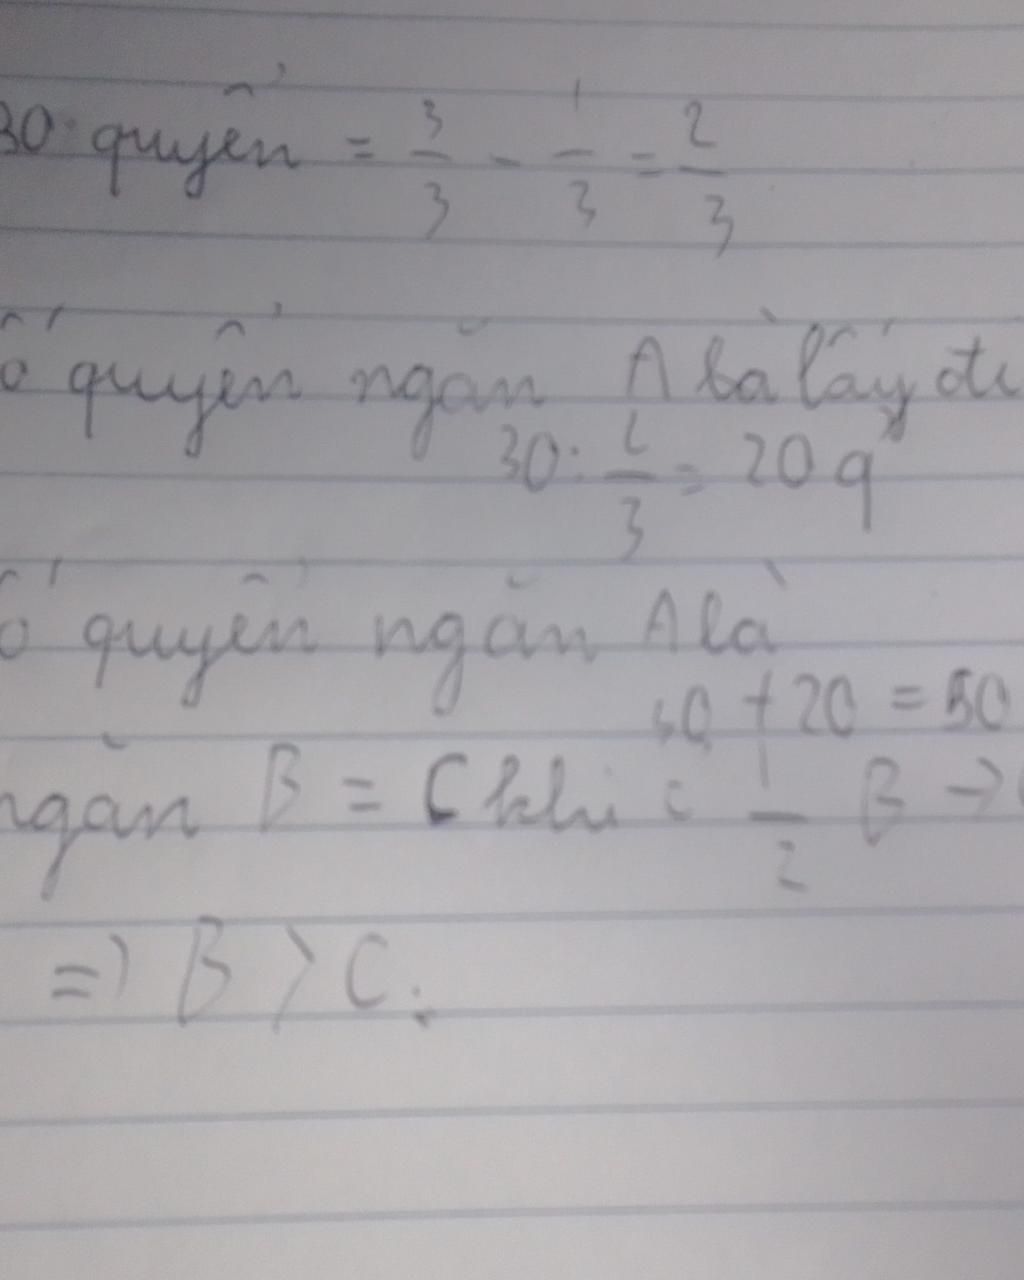 30 quyển = 3/3 - 1/3 = 2/3
ố quyển ngăn A là lấy đi
30 : 2/3 = 20 q
ố quyển ngăn A là
30 + 20 = 50
ngăn B = C khi = 1/2 B →
=> B > C.